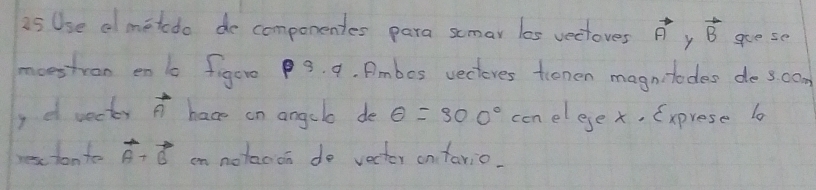 25 Use el método de componentes para sumar los vectores A y B que se
muestran en la figura P 3.9. Ambos vectores tienen magnitudes de 3.00m
y el vector A hace un angulo de θ = 30 0° con el eje x. Exprese la
resultante A + B en notación de vector unitario.